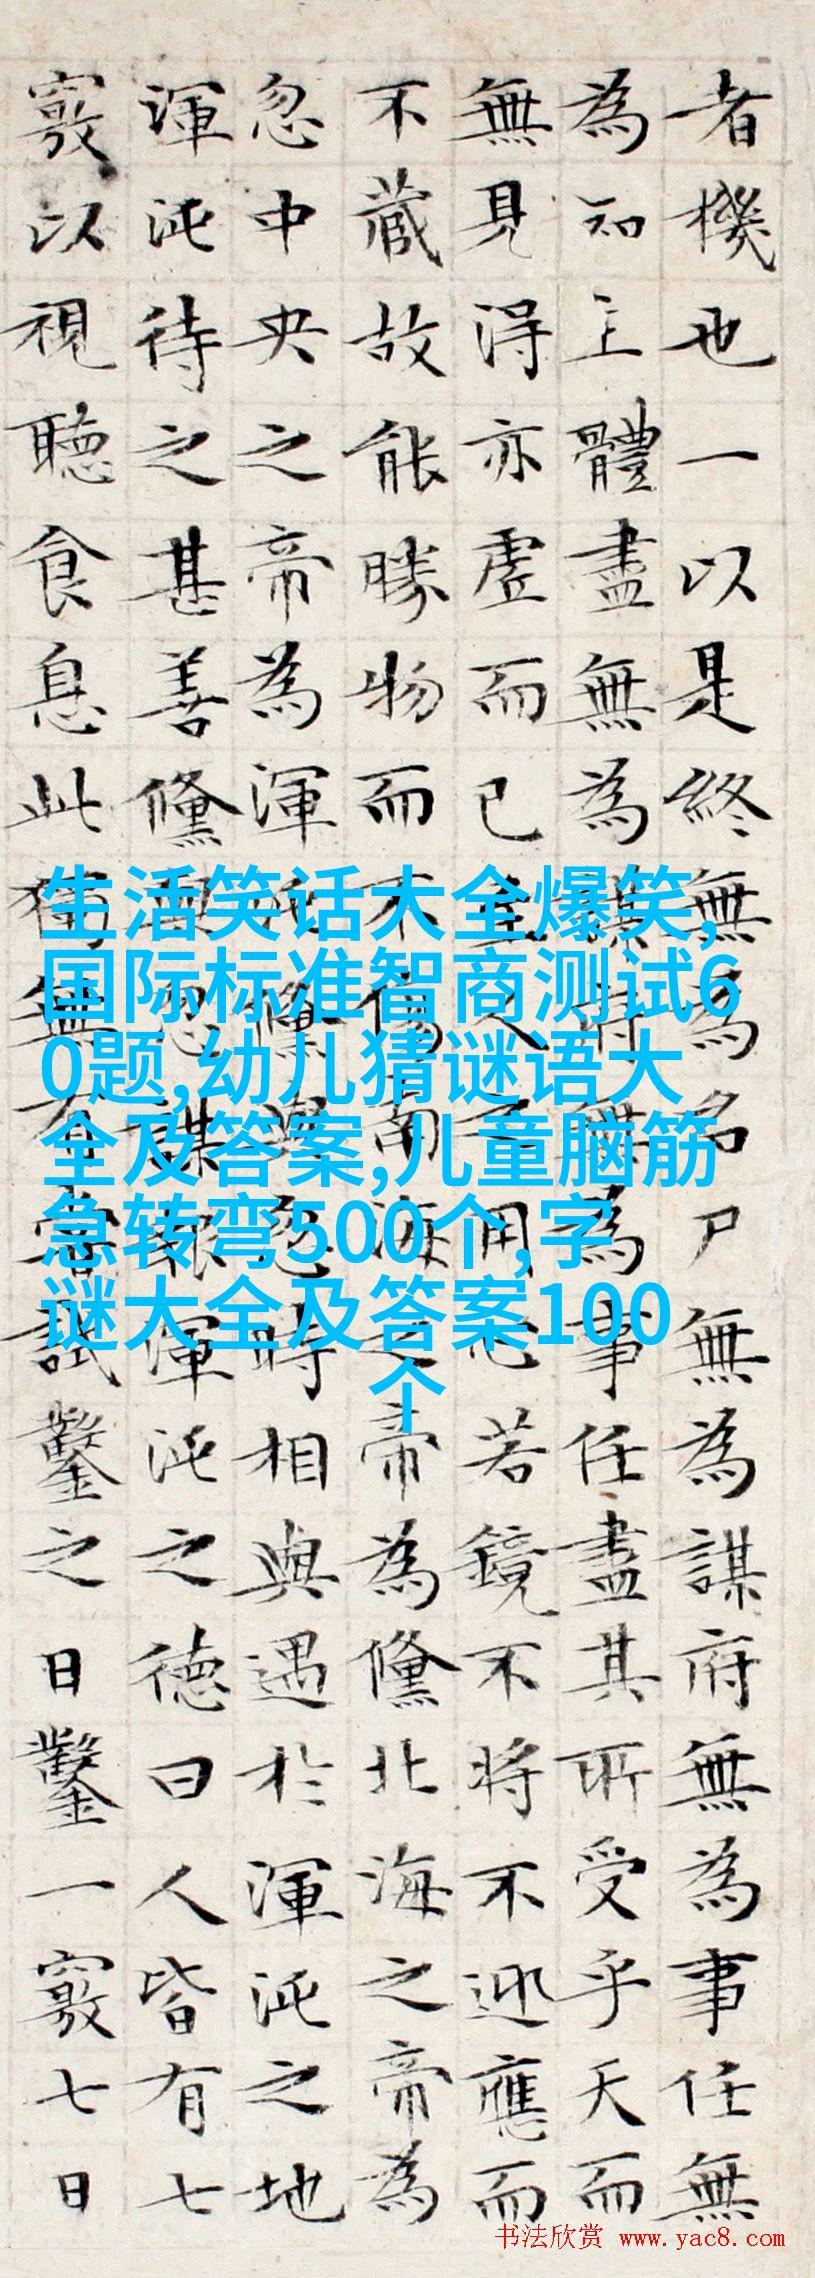 者機也一以是終無為名尸無為謀府無為事任無
為知主體盡無為謀府無為事任盡其所受乎天而
無見得亦虛而已至人之用心若鏡不將不迎應而
不藏故能勝物而不傷南海之帝為儵北海之帝為
忽中央之帝為渾沌儵與忽時相與遇於渾沌之地
渾沌待之甚善儵與忽謀報渾沌之德曰人皆有七
竅以視聽食息此獨無有嘗試鑿之日鑿一竅七日
生活笑话大全爆笑,
国际标准智商测试6
0题,幼儿猜谜语大
全及答案,儿童脑筋
急转弯500个,字
谜大全及答案100
个
书法欣赏 www.yac8.com